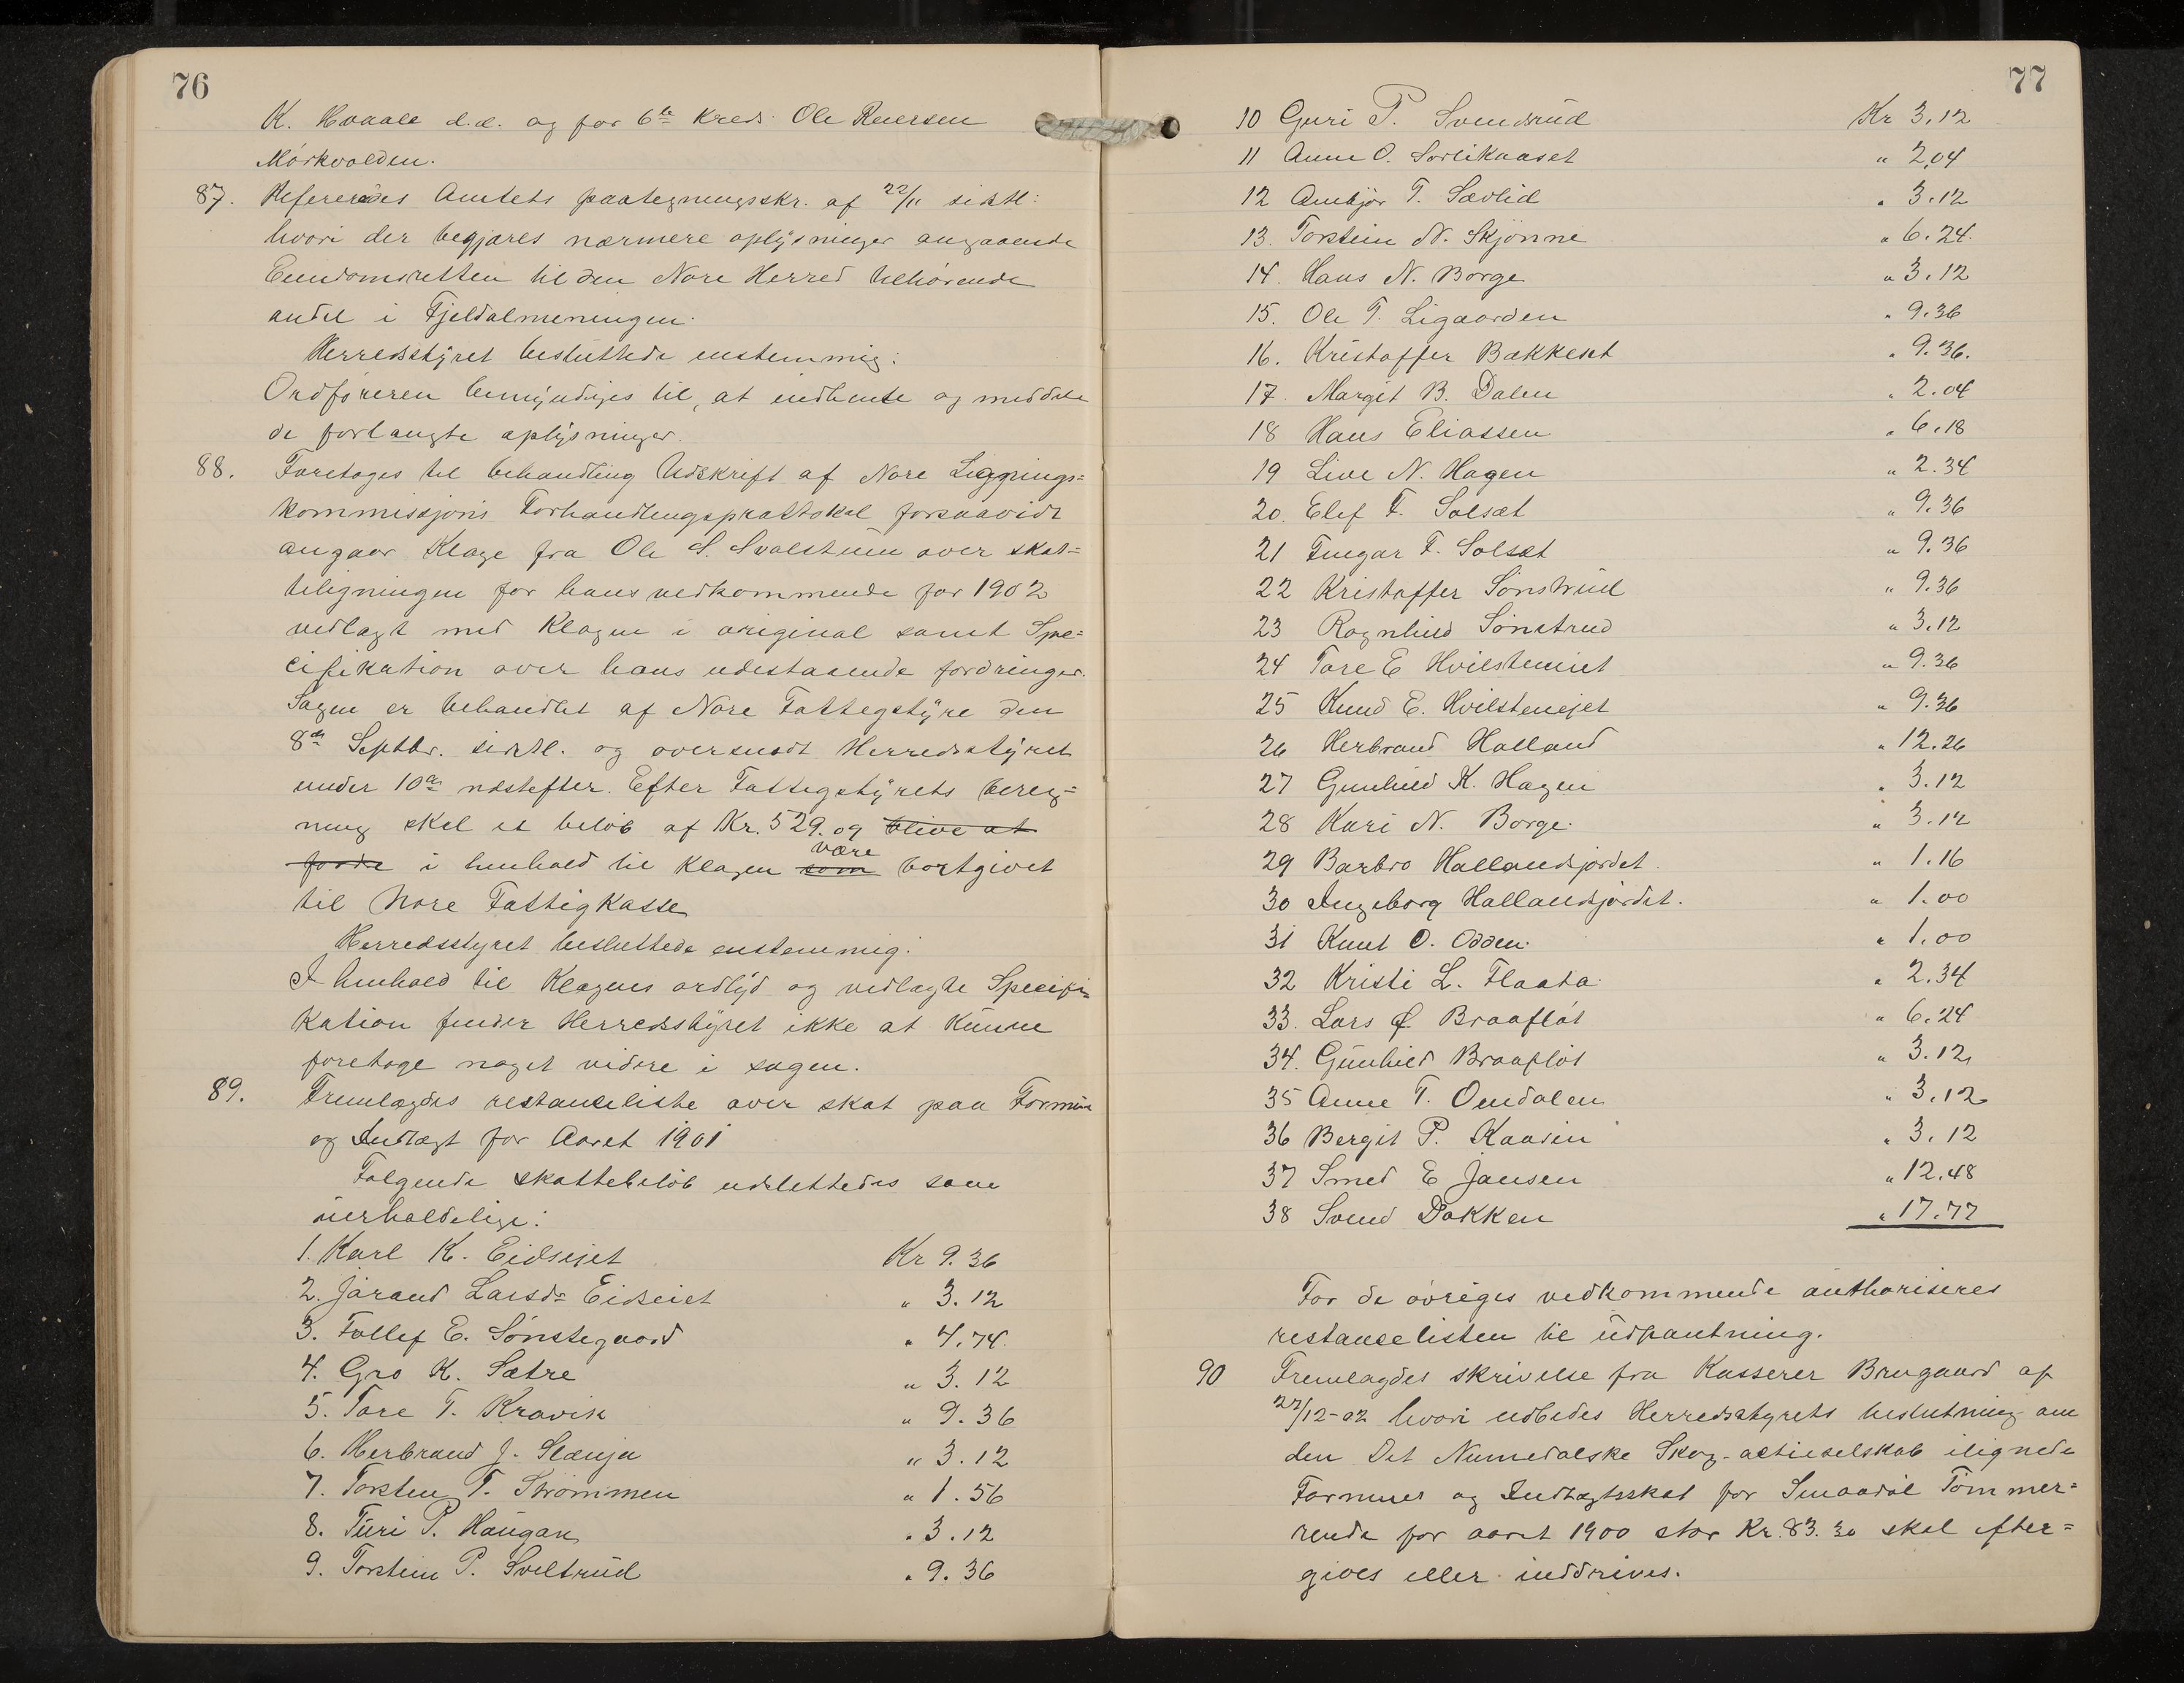 76
K. Hvaale d.æ. og for 6te Kreds: Ole Reiersen
Mørkvolden.
87. Refereredes Amtets paategningsskr. af 22/11 sidstl:
hvori der begjæres nærmere oplysninger angaaende
Eiendomsretten til den Nore Herred tilhørende
andel i Fjeldalmeningen.
Herredsstyret besluttede enstemmig:
Ordføreren bemyndiges til, at indhente og meddele
de forlangte oplysninger.
88. Foretoges til behandling Udskrift af Nore Lignings=
kommissjons Forhandlingsprottokol forsaavidt
angaar Klage fra Ole S. Svalstuen over skat=
teligningen for hans vedkommende for 1902
vedlagt med Klagen i original samt Spe=
cifikation over hans udestaaende fordringer.
Sagen er behandlet af Nore Fattigstyre den
8de Septbr. sidstl. og oversendt Herredsstyret
under 10de næstefter. Efter Fattigstyrets bereg=
ning skal et beløb af Kr. 529.09 blive at
være
forde i henhold til Klagen som bortgivet
til Nore Fattigkasse
Herredsstyret besluttede enstemmig:
I henhold til Klagens ordlyd og vedlagte Specifi=
kation finder Herredsstyret ikke at kunne
foretage noget videre i sagen.
89. Fremlagdes restanceliste over skat paa Formue
og Indtægt for Aaret 1901
Følgende skattebeløb udslettedes som
uerholdelige:
1. Karl K. Eidseiet Kr 9.36
2. Jørand Larsdr Eidseiet " 3.12
3. Tollef E. Sønstegaard " 4.74.
4. Gro K. Sætre " 3.12
5. Tore T. Kravik " 9.36
6. Herbrand J. Slænja " 3.12
7. Torsten T. Strømmen " 1.56
8. Turi P. Haugan " 3.12
9. Torstein P. Sveltrud " 9.36
77
10 Guri P. Svendsrud Kr 3.12
11 Anne O. Sorlikaaset " 2,04
12 Ambjør T. Sævlid " 3.12
13. Torstein N. Skjønne " 6.24.
14. Hans N. Borge " 3.12
15. Ole T. Ligaarden " 9.36
16. Kristoffer Bakkeset " 9.36.
17. Margit B. Dalen " 2.04
18 Hans Eliassen " 6.18
19 Live N. Hagen " 2.34
20. Elef F. Solsæt " 9.36
21 Fingar F. Solsæt " 9.36
22 Kristoffer Sønstrud " 9.36
23 Ragnhild Sønstrud " 3.12
24 Tore E Hvilsteniet " 9.36
25 Knud E. Hvilsteneiet " 9.36
26 Herbrand Halland " 12.26
27 Gunhild K. Hagen " 3.12
28 Kari N. Borge. " 3.12
29 Barbro Hallandsjordet " 1.16
30 Ingeborg Hallandsjordet. " 1.00
31 Knut O. Odden. " 1.00
32 Kristi L. Flaata. " 2.34
33. Lars Ø Braafløt " 6.24
34. Gunhild Braafløt " 3.12
35 Anne T. Omdalen " 3.12
36 Bergit P. Kaasin " 3.12
37 Smed E Jansen " 12.48
38 Svend Dokken " 17.77
For de øvriges vedkommende authoriseres
restancelisten til udpantning.
90 Fremlagdes skrivelse fra Kasserer Brugaard af
22/12-02 hvori udbedes Herredsstyrets beslutning om
den Det Numedalske Skog-aktieselskab ilignede
Formues og Indtægtsskat for Smaadøl Tømmer=
rende for aaret 1900 stor Kr. 83.30 skal efter=
gives eller inddrives.